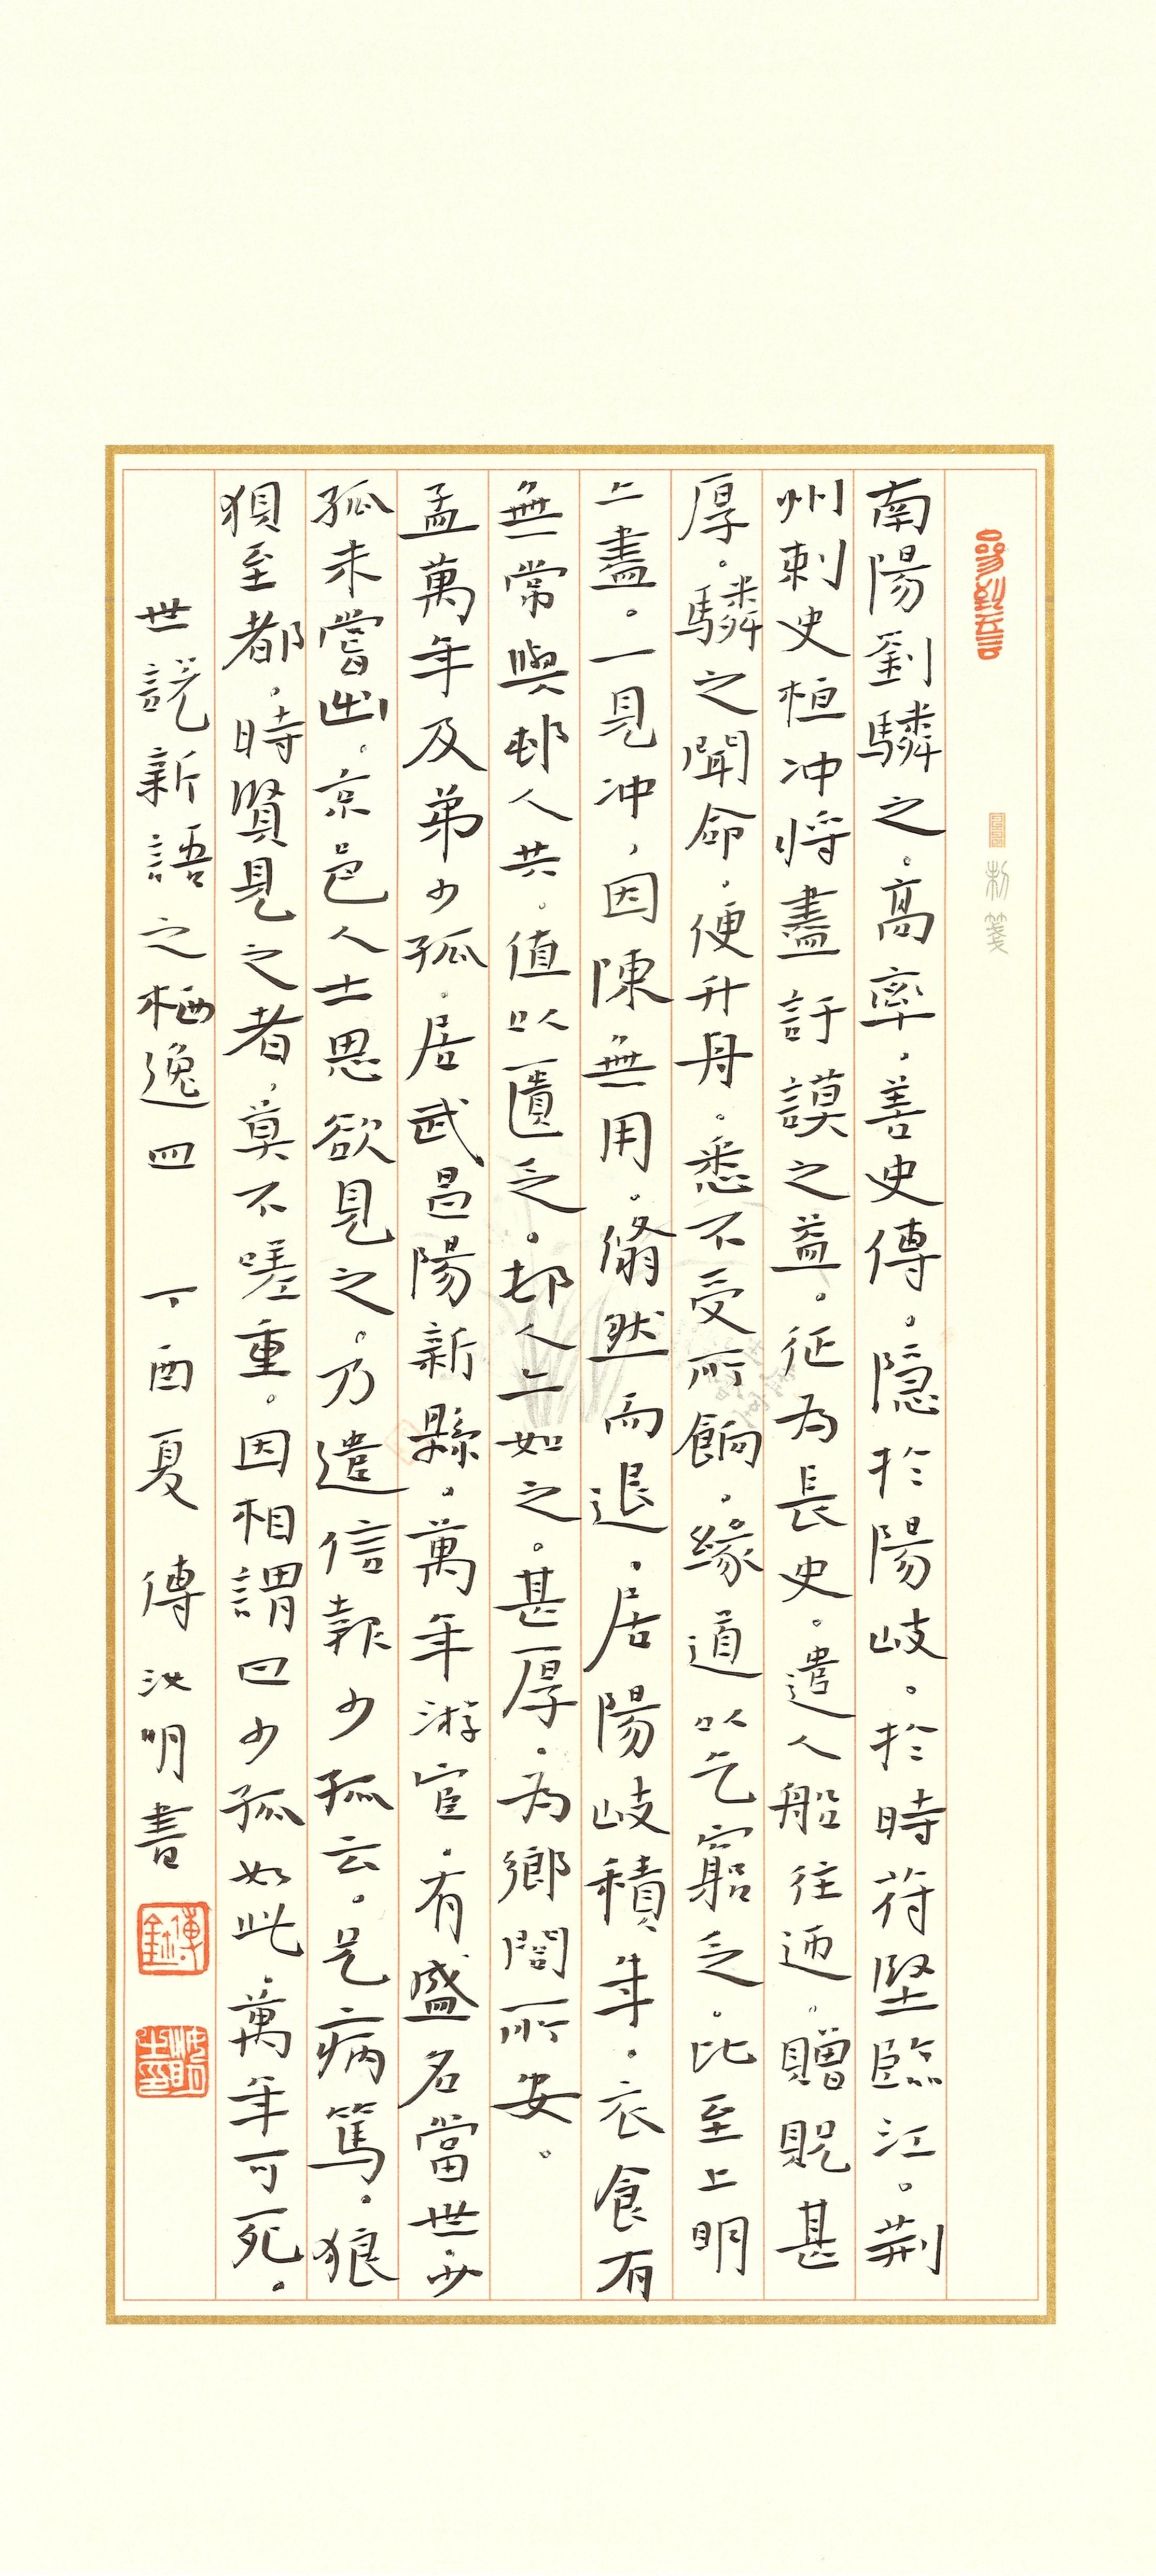 南陽劉驎之。高率，善史傳。隱於陽岐。於時苻堅臨江。荆
州刺史桓冲將盡訏謨之益。征為長史。遣人船往迊。贈貺甚
厚。驎之聞命，便升舟。悉不受所餉，緣道以乞窮乏。比至上明
亦盡。一見冲，因陳無用。翛然而退，居陽岐積年。衣食有
無常與邨人共。值以匱乏。邨人亦如之。甚厚。為鄉閭所安。
孟萬年及弟少孤，居武昌陽新縣。萬年游宦，有盛名當世。少
孤未嘗出。京邑人士思欲見之。乃遣信報少孤云。兄病篤。狼
狽至都，時賢見之者，莫不嗟重。因相謂曰少孤如此，萬年可死。
世說新語之栖逸四 丁酉夏 傅汝明書